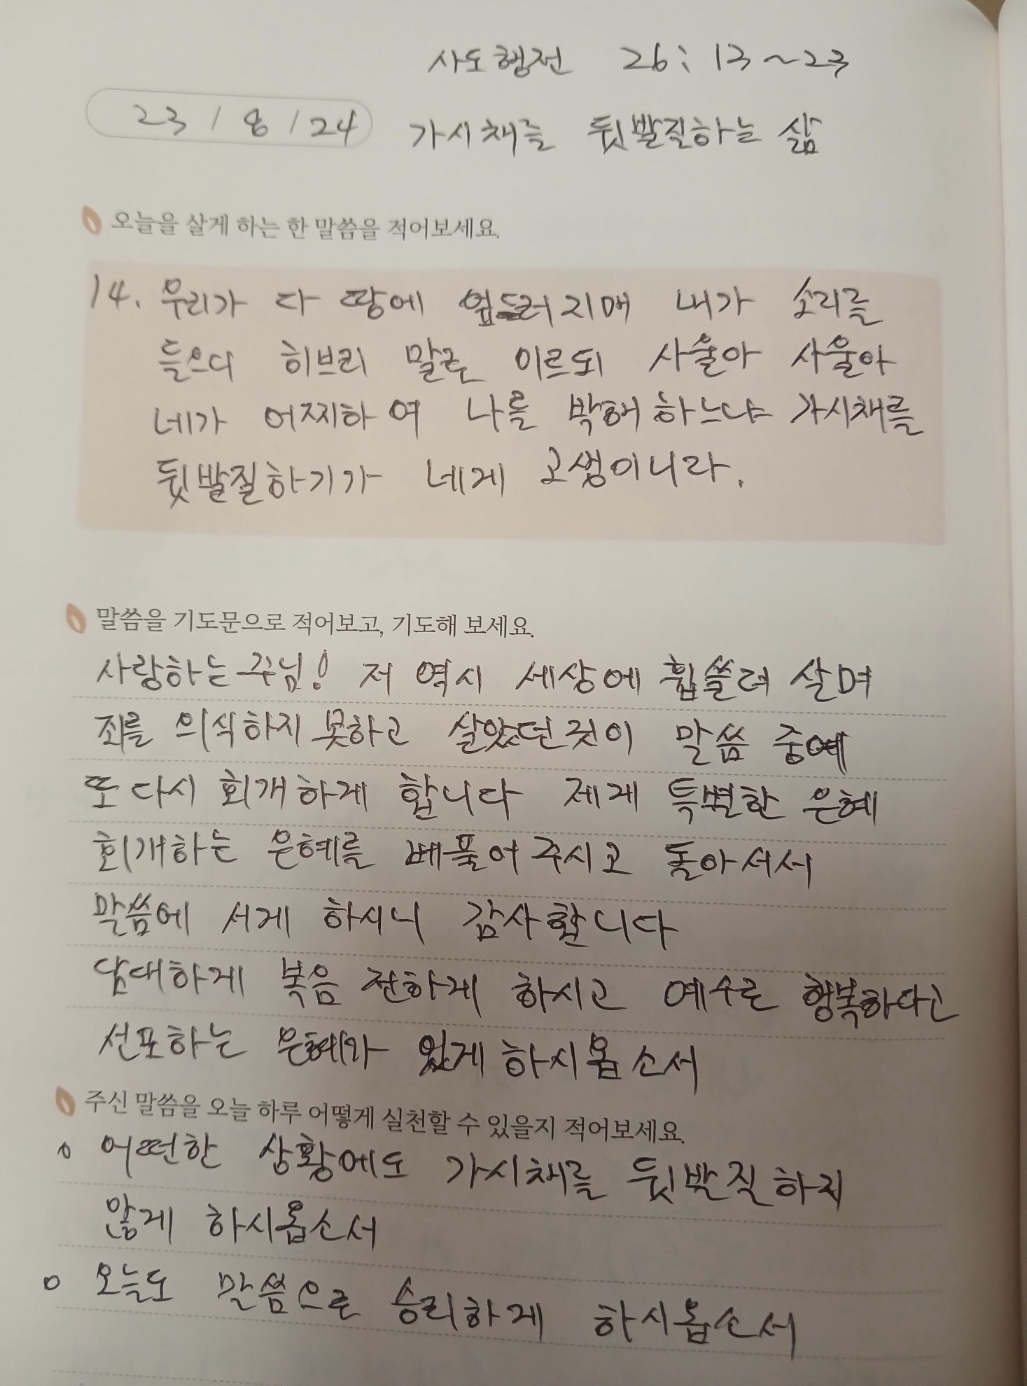 사도행전 26:13~23
23/8/24 가시채를 뒷발질하는 삶
오늘을 살게 하는 한 말씀을 적어보세요.
14. 우리가 다 땅에 엎드러지매 내가 소리를
들으니 히브리 말로 이르되 사울아 사울아
네가 어찌하여 나를 박해하느냐 가시채를
뒷발질하기가 네게 고생이니라.
말씀을 기도문으로 적어보고, 기도해 보세요.
사랑하는 주님! 저 역시 세상에 휩쓸려 살며
죄를 의식하지 못하고 살았던것이 말씀 중에
또 다시 회개하게 합니다 제게 특별한 은혜
회개하는 은혜를 베풀어 주시고 돌아서서
말씀에 서게 하시니 감사합니다
담대하게 복음 전하게 하시고 예수로 행복하다고
선포하는 은혜가 있게 하시옵소서
주신 말씀을 오늘 하루 어떻게 실천할 수 있을지 적어보세요.
어떠한 상황에도 가시채를 뒷발질하지
않게 하시옵소서
오늘도 말씀으로 승리하게 하시옵소서